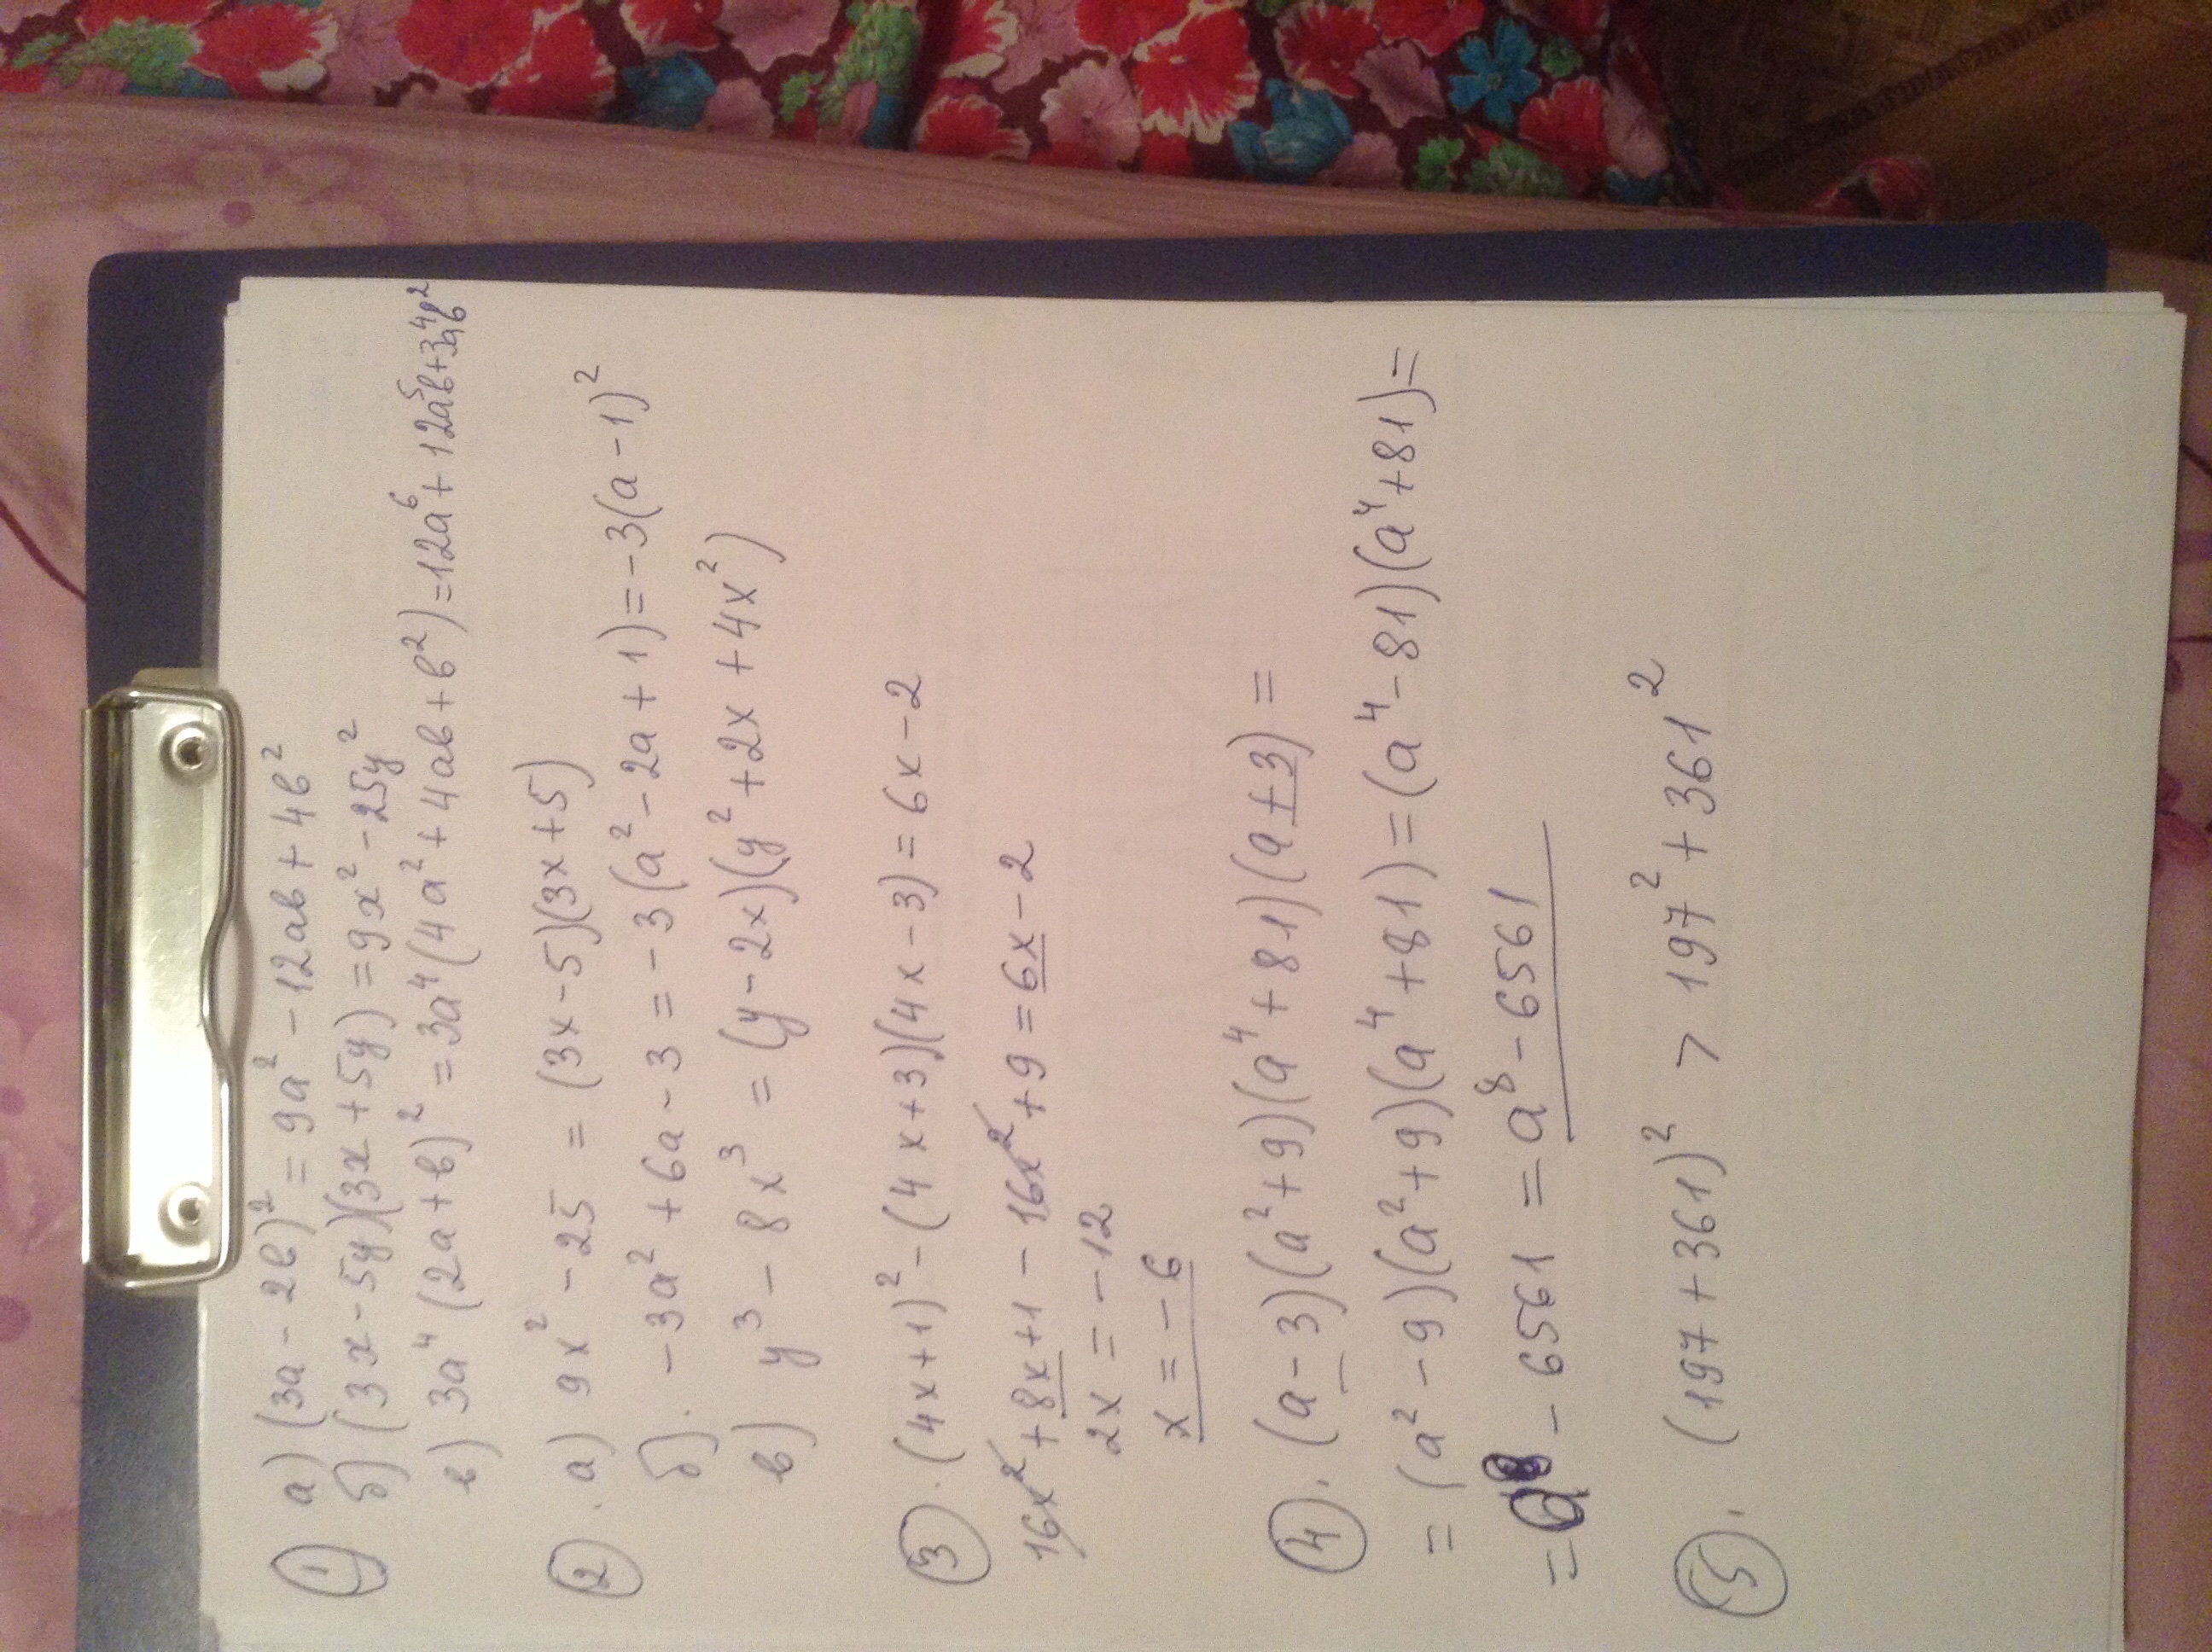 ① а) (3а - 2в)² = 9а² - 12ав + 4в²
б) (3x - 5y)(3x + 5y) = 9x² - 25y²
в) 3а⁴(2а + в)² = 3а⁴(4а² + 4ав + в²) = 12а⁶ + 12а⁵в + 3а⁴в²
②. а) 9x² - 25 = (3x - 5)(3x + 5)
б). -3а² + 6а - 3 = -3(а² - 2а + 1) = -3(а - 1)²
в) y³ - 8x³ = (y - 2x)(y² + 2x + 4x²)
③. (4x + 1)² - (4x + 3)(4x - 3) = 6x - 2
16x² + 8x + 1 - 16x² + 9 = 6x - 2
2x = -12
x = -6
④. (а - 3)(а² + 9)(а⁴ + 81)(а + 3) =
= (а² - 9)(а² + 9)(а⁴ + 81) = (а⁴ - 81)(а⁴ + 81) =
= а⁸ - 6561 = а⁸ - 6561
⑤. (197 + 361)² > 197² + 361²